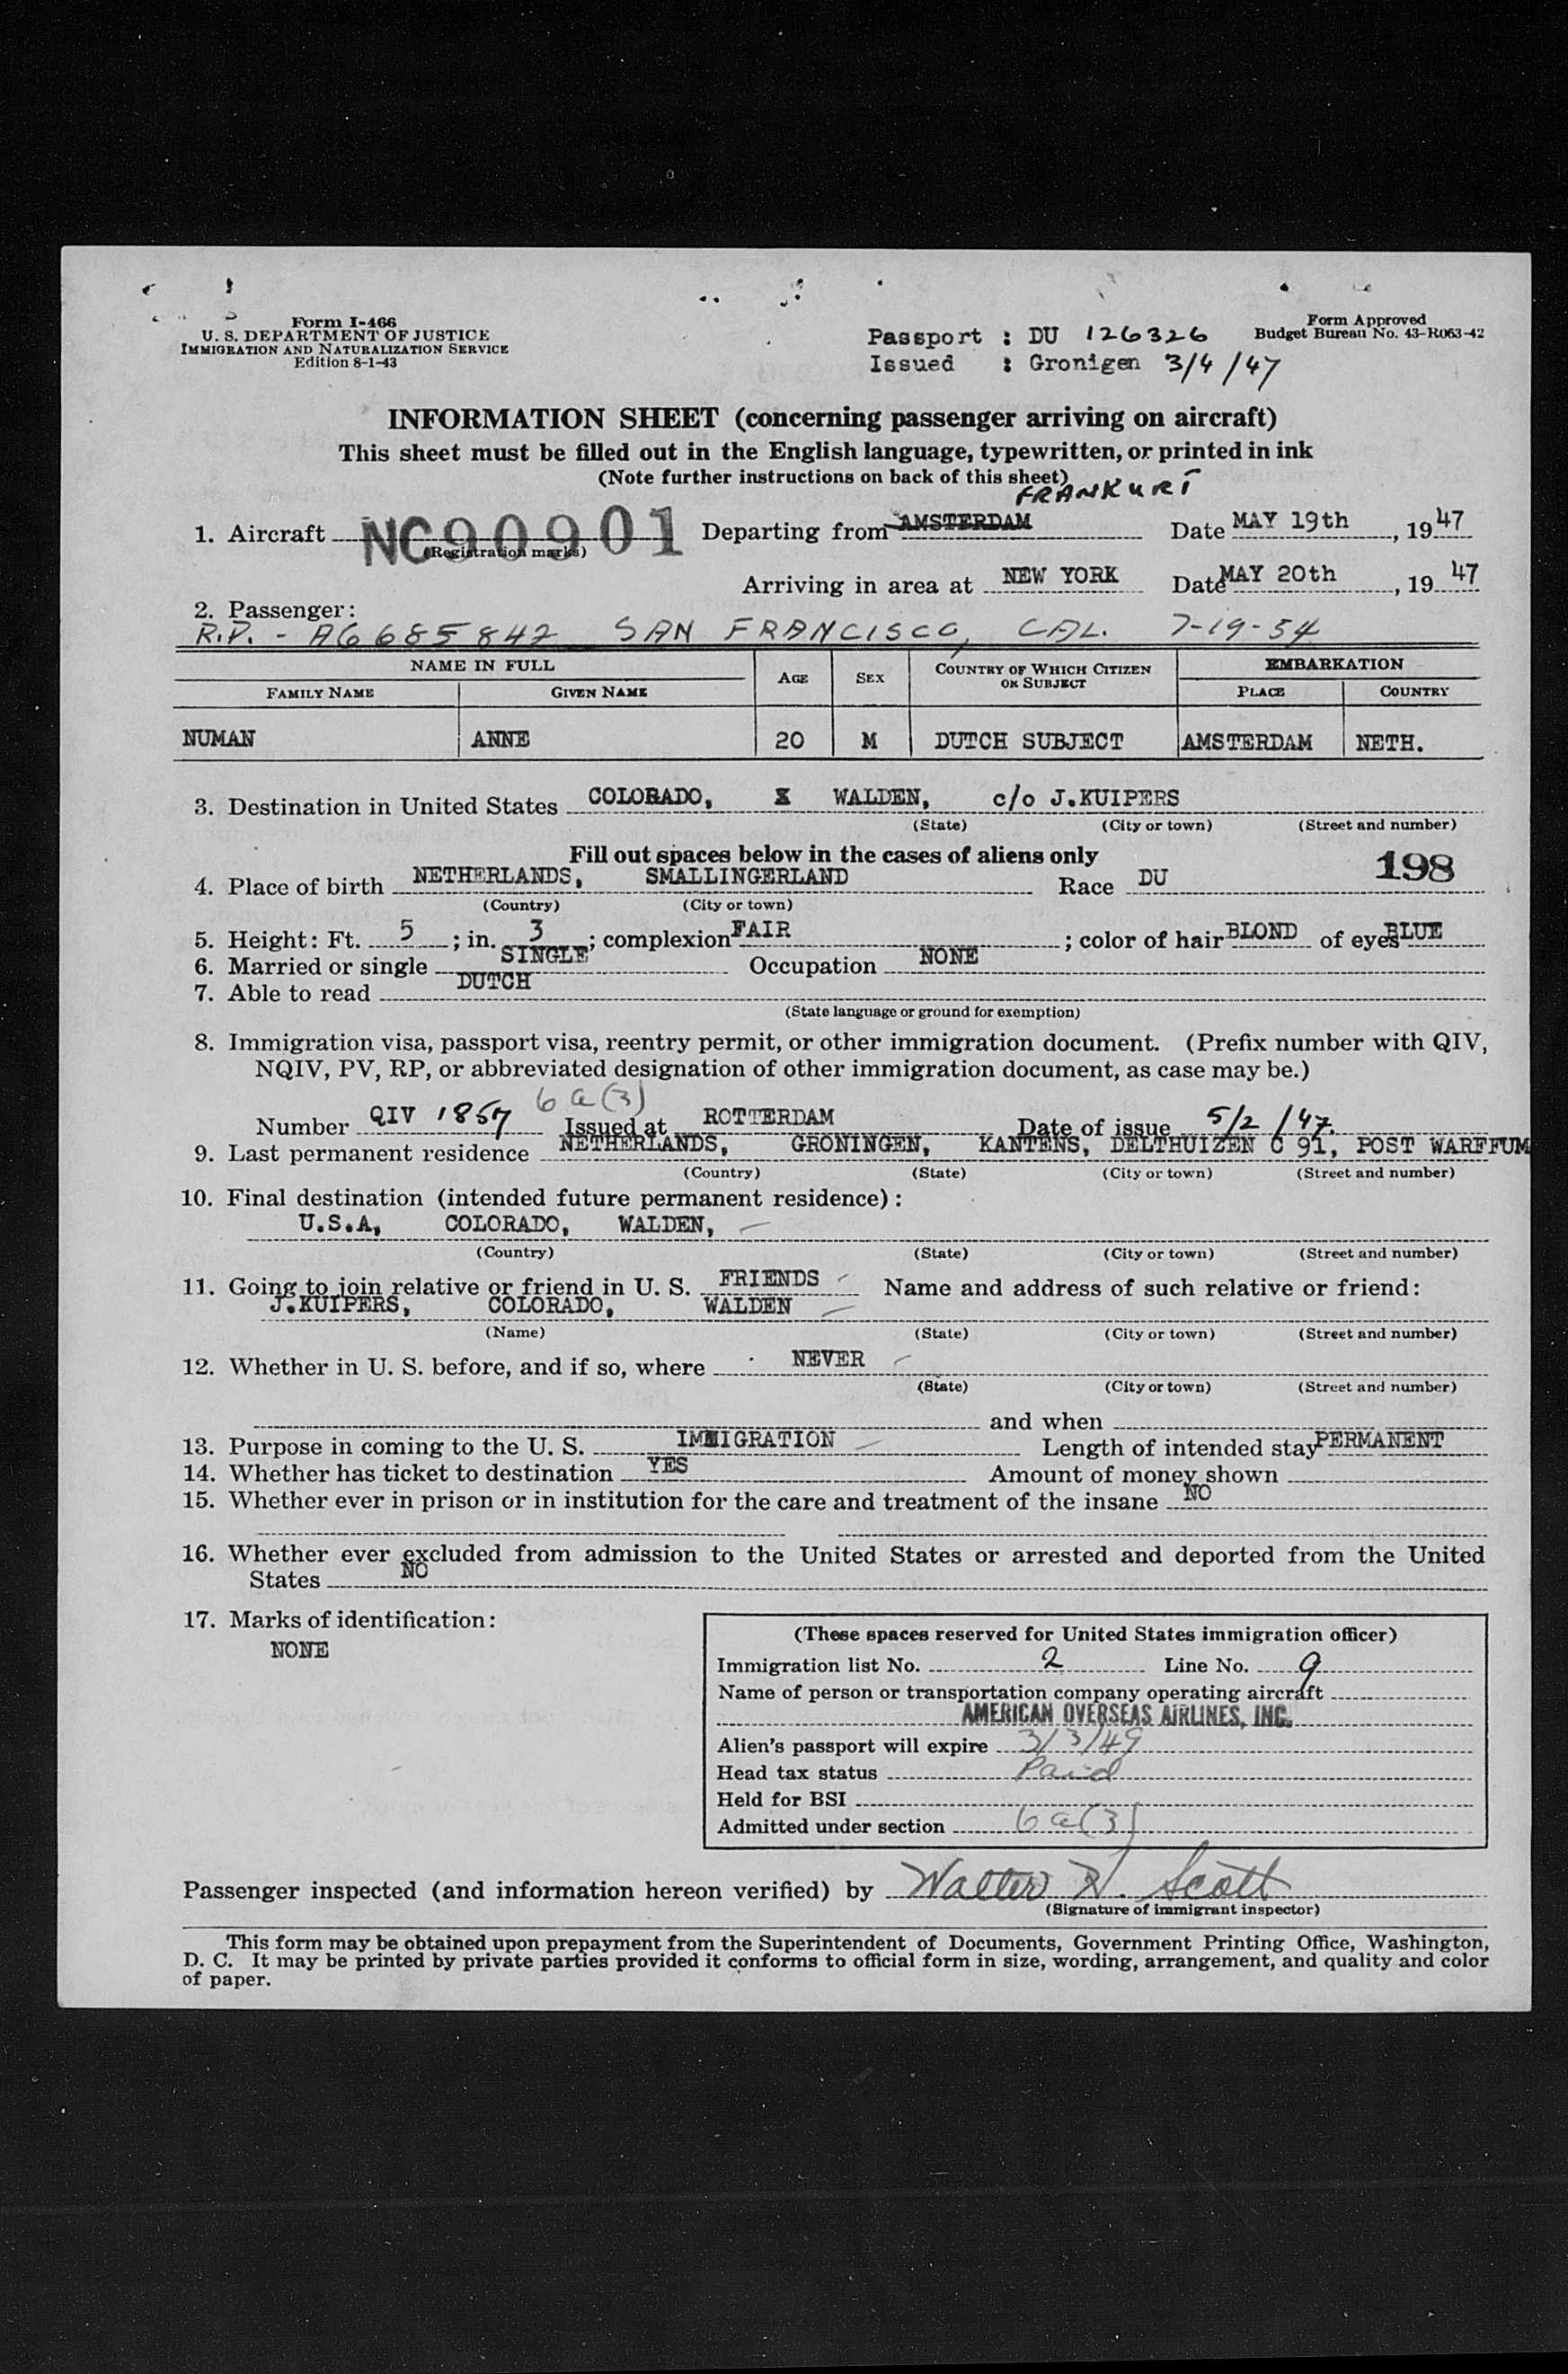 Form I-466
U. S. DEPARTMENT OF JUSTICE
IMMIGRATION AND NATURALIZATION SERVICE
Edition 8-1-43
Passport : DU 126326
Issued : Gronigen 3/4/47
Form Approved
Budget Bureau No. 43-R063-42
INFORMATION SHEET (concerning passenger arriving on aircraft)
This sheet must be filled out in the English language, typewritten, or printed in ink
(Note further instructions on back of this sheet)
FRANKURT
1. Aircraft NC90901 Departing from AMSTERDAM Date MAY 19th, 1947
(Registration marks)
Arriving in area at NEW YORK Date MAY 20th, 1947
2. Passenger:
R.P. - A6685842 SAN FRANCISCO, CAL. 7-19-54
NAME IN FULL AGE SEX COUNTRY OF WHICH CITIZEN OR SUBJECT EMBARKATION
FAMILY NAME GIVEN NAME PLACE COUNTRY
NUMAN ANNE 20 M DUTCH SUBJECT AMSTERDAM NETH.
3. Destination in United States COLORADO, X WALDEN, c/o J.KUIPERS
(State) (City or town) (Street and number)
Fill out spaces below in the cases of aliens only
198
4. Place of birth NETHERLANDS, SMALLINGERLAND Race DU
(Country) (City or town)
5. Height: Ft. 5; in. 3; complexion FAIR; color of hair BLOND of eyes BLUE
6. Married or single SINGLE Occupation NONE
7. Able to read DUTCH
(State language or ground for exemption)
8. Immigration visa, passport visa, reentry permit, or other immigration document. (Prefix number with QIV,
NQIV, PV, RP, or abbreviated designation of other immigration document, as case may be.)
6a(3)
Number QIV 1857 Issued at ROTTERDAM Date of issue 5/2/47.
9. Last permanent residence NETHERLANDS, GRONINGEN, KANTENS, DELTHUIZEN C 91, POST WARFFUM
(Country) (State) (City or town) (Street and number)
10. Final destination (intended future permanent residence):
U.S.A, COLORADO, WALDEN,
(Country) (State) (City or town) (Street and number)
11. Going to join relative or friend in U. S. FRIENDS Name and address of such relative or friend:
J.KUIPERS, COLORADO, WALDEN
(Name) (State) (City or town) (Street and number)
12. Whether in U. S. before, and if so, where NEVER
(State) (City or town) (Street and number)
and when
13. Purpose in coming to the U. S. IMMIGRATION Length of intended stay PERMANENT
14. Whether has ticket to destination YES Amount of money shown
15. Whether ever in prison or in institution for the care and treatment of the insane NO
16. Whether ever excluded from admission to the United States or arrested and deported from the United
States NO
17. Marks of identification:
NONE
(These spaces reserved for United States immigration officer)
Immigration list No. 2 Line No. 9
Name of person or transportation company operating aircraft
AMERICAN OVERSEAS AIRLINES, INC.
Alien's passport will expire 3/3/49
Head tax status Paid
Held for BSI
Admitted under section 6a(3)
Passenger inspected (and information hereon verified) by Walter H. Scott
(Signature of immigrant inspector)
This form may be obtained upon prepayment from the Superintendent of Documents, Government Printing Office, Washington,
D. C. It may be printed by private parties provided it conforms to official form in size, wording, arrangement, and quality and color
of paper.